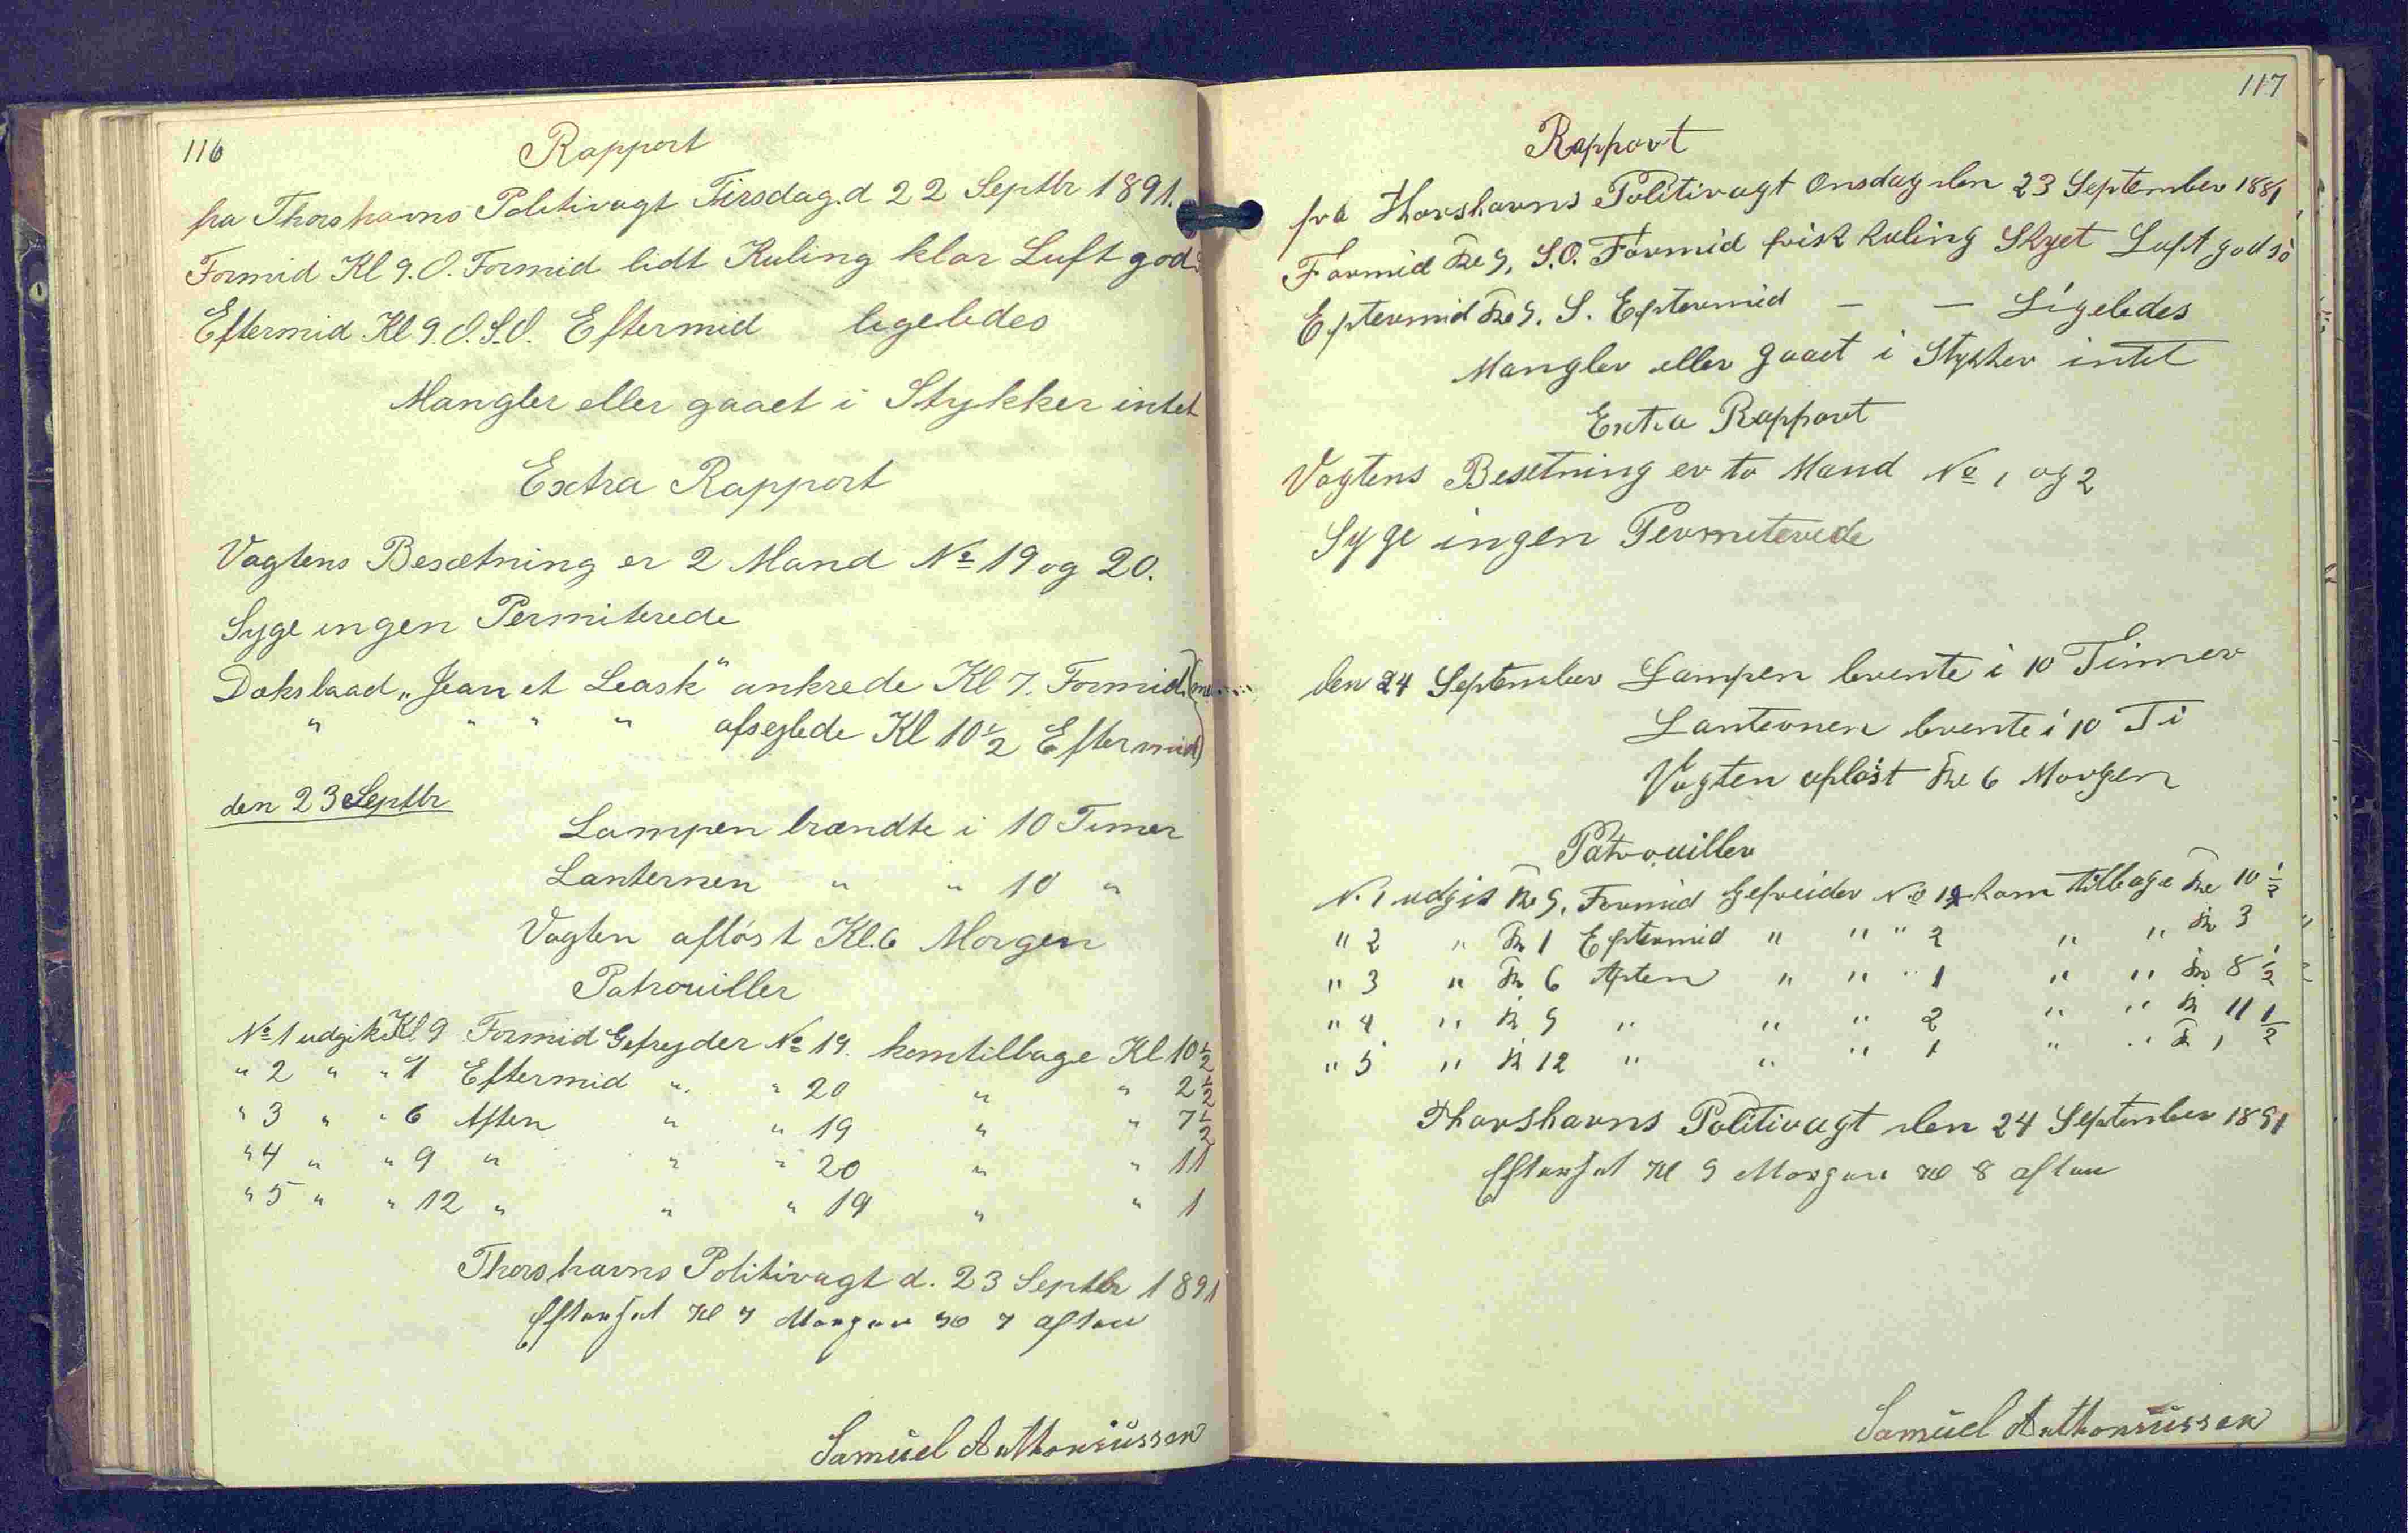 116
Rapport
fra Thorshavns Politivagt Tirsdag d 22 Septbr 1891.
Formid Kl 9. O. Formid lidt Kuling klar Luft god
Eftermid Kl 9. O.S.O. Eftermid ligeledes
Mangler eller gaaet i Stykker intet
Extra Rapport
Vagtens Besætning er 2 Mand No 19 og 20.
Syge ingen Permiterede
Dæksbaad „Jean et Leask" ankrede Kl 7. Formid.
" " " " afsejlede Kl 10 1/2 Eftermid)
den 23 Septbr
Lampen brændte i 10 Timer
Lanternen " " 10 "
Vagten afløst Kl. 6 Morgen
Patrouiller
No 1 udgik Kl 9 Formid Gefrejder No 19. kom tilbage Kl 10 1/2
" 2 " " 1 Eftermid " " 20 " " 2 1/2
" 3 " " 6 Aften " " 19 " " 7 1/2
" 4 " " 9 " " " 20 " " 11
" 5 " " 12 " " " 19 " " 1
Thorshavns Politivagt d. 23 Septbr 1891
Efterset Kl 7 Morgen Kl 7 aften
Samuel Anthoniussen
117
Rapport
fra Thorshavns Politivagt Onsdag den 23 September 1891
Formid Kl 9, S.O. Formid frisk Kuling Skyet Luft god sö
Eftermid Kl 9. S. Eftermid — — Ligeledes
Mangler eller gaaet i Stykker intet
Extra Rapport
Vagtens Besetning er to Mand No 1 og 2
Syge ingen Permiterede
den 24 September Lampen brente i 10 Timer
Lanternen brente i 10 Ti
Vagten afløst Kl 6 Morgen
Patrouiller
N. 1 udgik Kl 9, Formid Gefreider No 1 kom tilbage Kl 10 1/2
" 2 " Kl 1 Eftermid " " " 2 " " Kl 3
" 3 " Kl 6 Aften " " " 1 " " Kl 8 1/2
" 4 " Kl 9 " " " 2 " " Kl 11 1/2
" 5 " Kl 12 " " " 1 " " Kl 1 1/2
Thorshavns Politivagt den 24 September 1891
Efterset Kl 9 Morgen Kl 8 aften
Samuel Anthoniussen